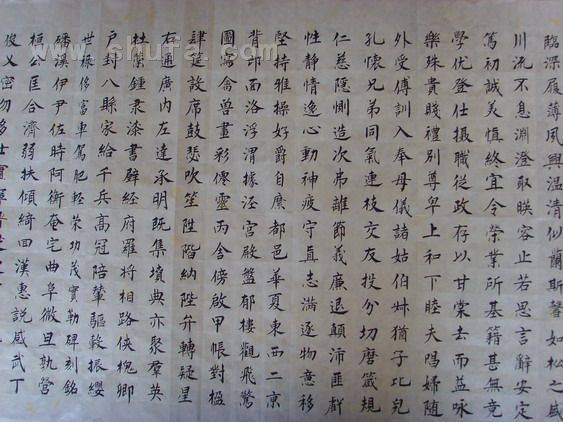 臨深履薄夙興温清似蘭斯馨如松之盛
川流不息淵澄取暎容止若思言辭安定
篤初誠美慎終宜令榮業所基籍甚無竟
學优登仕攝職從政存以甘棠去而益咏
樂殊貴賤禮別尊卑上和下睦夫唱婦随
外受傅訓入奉母儀諸姑伯叔猶子比兒
孔懷兄弟同氣連枝交友投分切磨箴規
仁慈隱惻造次弗離節義廉退顛沛匪虧
性静情逸心動神疲守真志滿逐物意移
堅持雅操好爵自縻都邑華夏東西二京
背邙面洛浮渭據涇宮殿盤郁樓觀飛驚
圖寫禽兽畫彩僊靈丙舍傍啟甲帳對楹
肆筵設席鼓瑟吹笙陞階納陛弁轉疑星
右通廣内左達承明既集墳典亦聚群英
杜稾鍾隸漆書壁經府羅將相路俠槐卿
户封八縣家給千兵高冠陪輦驅轂振纓
世禄侈富車駕肥輕策功茂實勒碑刻銘
磻溪伊尹佐時阿衡奄宅曲阜微旦孰營
桓公匡合濟弱扶傾綺回漢惠説感武丁
俊乂密勿多士寔寧晉